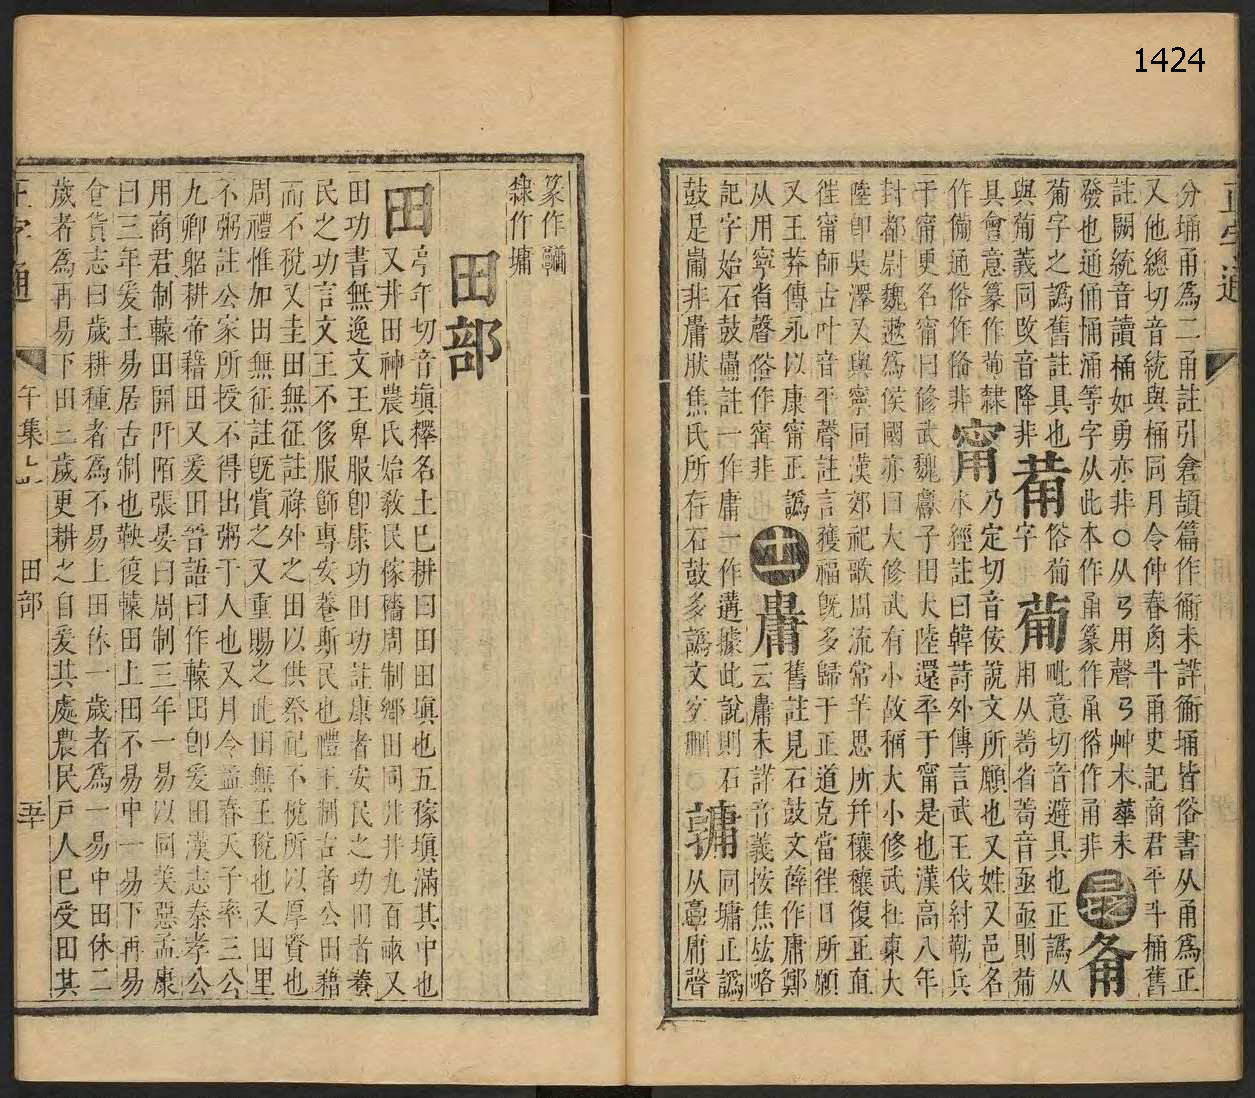 1424
正字通
分埇甬爲二甬註引倉頡篇作衕未詳衕埇皆俗書从甬爲正
又他總切音統與桶同月令仲春角斗甬史記商君平斗桶舊
註闕統音讀桶如勇亦非○从𢎘用聲𢎘艸木華未
發也通俑恿涌等字从此本作甬篆作甬俗作甬非
葡字之譌舊註具也
與葡義同改音降非
俗葡字
毗意切音避具也正譌从
用从茍省茍音亟亟則葡
具會意篆作葡隸
作僃通俗作偹非
甯
乃定切音佞說文所願也又姓又邑名
水經註曰韓詩外傳言武王伐紂勒兵
于甯更名甯曰修武魏獻子田大陸還卒于甯是也漢高八年
封都尉魏遬爲侯國亦曰大修武有小故稱大小修武在東大
陸卽吳澤又與寧同漢郊祀歌周流常羊思所幷穰穰復正直
徃甯師古叶音平聲註言獲福旣多歸于正道克當徃日所願
又王莽傳永以康甯正譌
从用寧省聲俗作寗非
十一
舊註見石鼓文薛作庸鄭
云𤲃未詳音義按焦竑略
記字始石鼓𤲃註一作庸一作遘據此說則石
鼓是𤲃非𤲃朕焦氏所存石鼓多譌文宜刪○
同墉正譌
从𩫏庸聲
篆作
隸作墉
田部
田
亭年切音塡釋名土巳耕曰田田塡也五稼塡滿其中也
又井田神農氏始敎民稼穡周制鄉田同井井九百畝又
田功書無逸文王卑服卽康功田功註康者安民之功田者養
民之功言文王不侈服飾專安養斯民也禮王制古者公田藉
而不稅又圭田無征註祿外之田以供祭祀不稅所以厚賢也
周禮惟加田無征註旣賞之又重賜之此田無王稅也又田里
不粥註公家所授不得出粥于人也又月令孟春天子率三公
九卿躬耕帝藉田又爰田晉語曰作轅田卽爰田漢志秦孝公
用商君制轅田開阡陌張晏曰周制三年一易以同美惡孟康
曰三年爰土易居古制也鞅復轅田上田不易中一易下再易
食貨志曰歲耕種者爲不易上田休一歲者爲一易中田休二
歲者爲再易下田三歲更耕之自爰其處農民戸人巳受田其
正字通
午集上
田部
五十